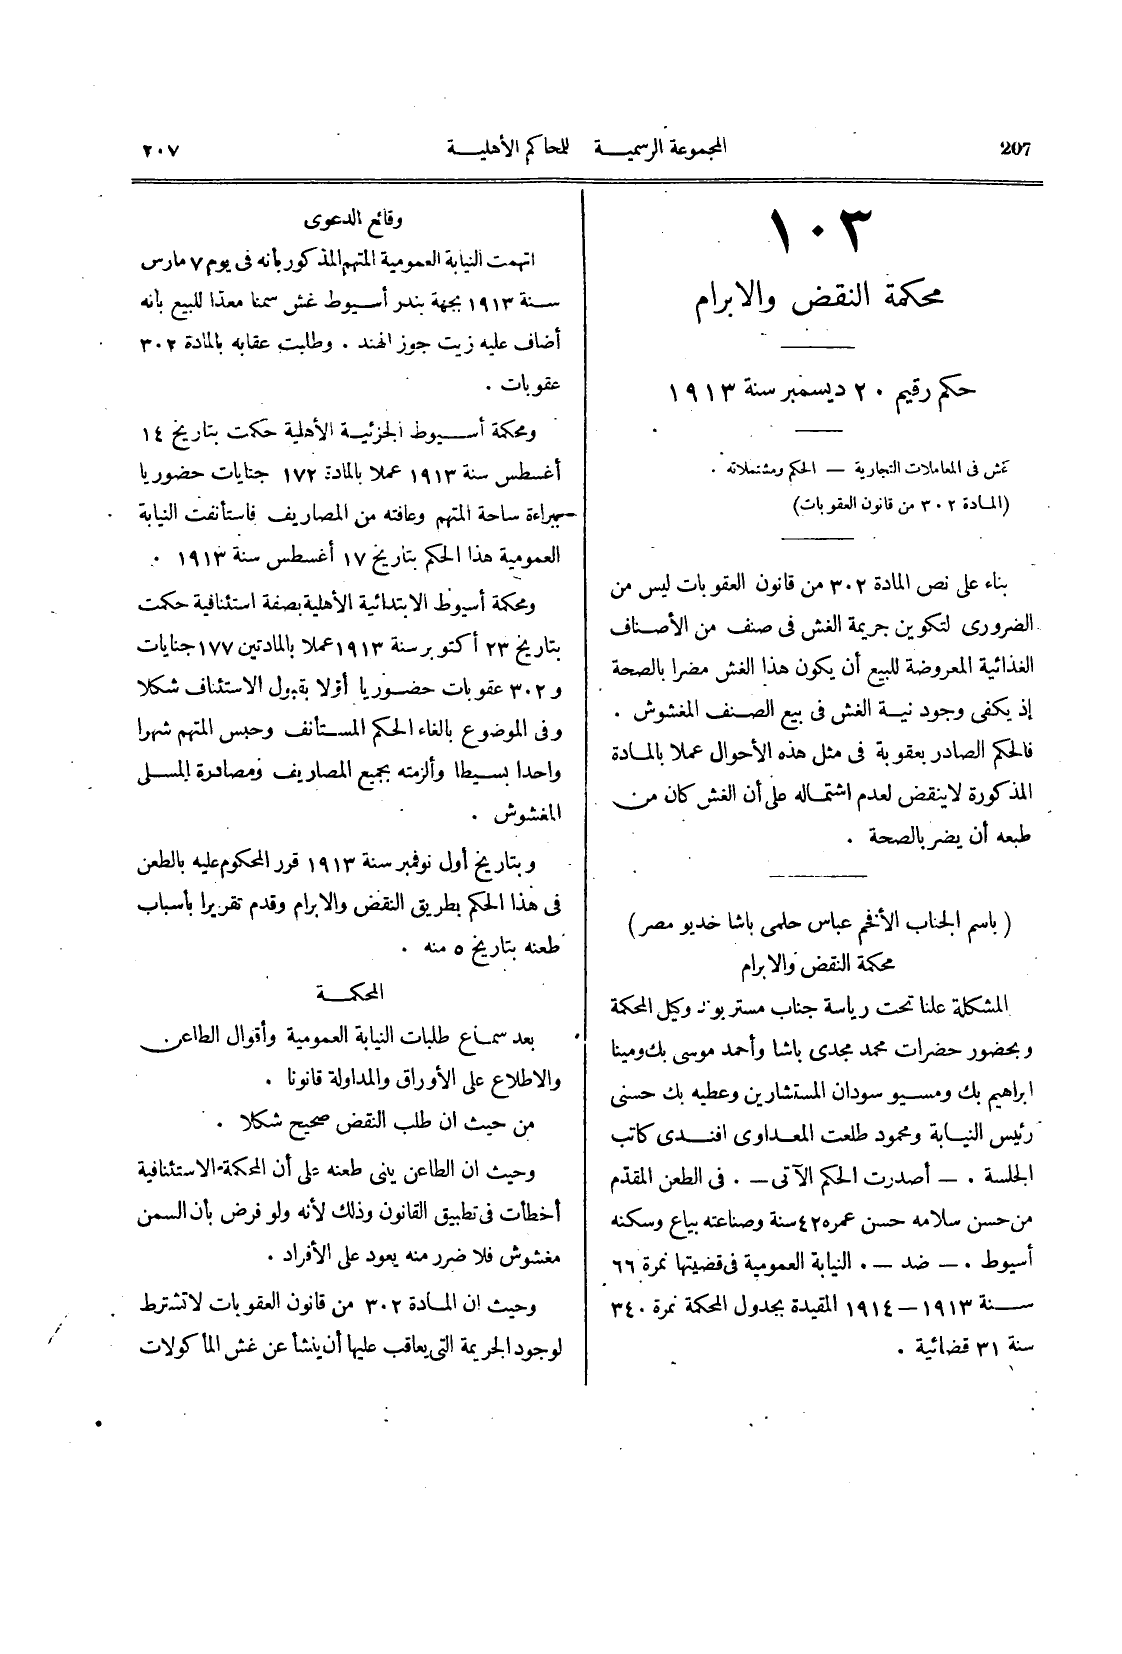 207 المجموعة الرسمية للمحاكم الأهلية ٢٠٧
١٠٣
محكمة النقض والابرام
حكم رقيم ٢٠ ديسمبر سنة ١٩١٣
غش فى المعاملات التجارية — الحكم ومشتملاته .
(المادة ٣٠٢ من قانون العقوبات)
بناء على نص المادة ٣٠٢ من قانون العقوبات ليس من
الضرورى لتكوين جريمة الغش فى صنف من الأصناف
الغذائية المعروضة للبيع أن يكون هذا الغش مضرا بالصحة
إذ يكفى وجود نية الغش فى بيع الصنف المغشوش .
فالحكم الصادر بعقوبة فى مثل هذه الأحوال عملا بالمادة
المذكورة لاينقض لعدم اشتماله على أن الغش كان من
طبعه أن يضر بالصحة .
( باسم الجناب الأفخم عباس حلمى باشا خديو مصر )
محكمة النقض والابرام
المشكلة علنا تحت رياسة جناب مستر بوند وكيل المحكمة
وبحضور حضرات محمد مجدى باشا وأحمد موسى بك ومينا
ابراهيم بك ومسيو سودان المستشارين وعطيه بك حسنى
رئيس النيابة ومحمود طلعت المعداوى افندى كاتب
الجلسة . — أصدرت الحكم الآتى — . فى الطعن المقدّم
من حسن سلامه حسن عمره ٤٢ سنة وصناعته بياع وسكنه
أسيوط . — ضد — . النيابة العمومية فى قضيتها نمرة ٦٦
سنة ١٩١٣ — ١٩١٤ المقيدة بجدول المحكمة نمرة ٣٤٠
سنة ٣١ قضائية .
وقائع الدعوى
اتهمت النيابة العمومية المتهم المذكور بأنه فى يوم ٧ مارس
سنة ١٩١٣ بجهة بندر أسيوط غش سمنا معدّا للبيع بأنه
أضاف عليه زيت جوز الهند . وطلبت عقابه بالمادة ٣٠٢
عقوبات .
ومحكمة أسيوط الجزئية الأهلية حكمت بتاريخ ١٤
أغسطس سنة ١٩١٣ عملا بالمادة ١٧٢ جنايات حضوريا
ببراءة ساحة المتهم وعافته من المصاريف فاستأنفت النيابة
العمومية هذا الحكم بتاريخ ١٧ أغسطس سنة ١٩١٣ .
ومحكمة أسيوط الابتدائية الأهلية بصفة استئنافية حكمت
بتاريخ ٢٣ أكتوبر سنة ١٩١٣ عملا بالمادتين ١٧٧ جنايات
و ٣٠٢ عقوبات حضوريا أوّلا بقبول الاستئناف شكلا
وفى الموضوع بالغاء الحكم المستأنف وحبس المتهم شهرا
واحدا بسيطا وألزمته بجميع المصاريف ومصادرة المسلى
المغشوش .
وبتاريخ أول نوفمبر سنة ١٩١٣ قرر المحكوم عليه بالطعن
فى هذا الحكم بطريق النقض والابرام وقدم تقريرا بأسباب
طعنه بتاريخ ٥ منه .
المحكمة
بعد سماع طلبات النيابة العمومية وأقوال الطاعن
والاطلاع على الأوراق والمداولة قانونا .
من حيث ان طلب النقض صحيح شكلا .
وحيث ان الطاعن يبنى طعنه على أن المحكمة الاستئنافية
أخطأت فى تطبيق القانون وذلك لأنه ولو فرض بأن السمن
مغشوش فلا ضرر منه يعود على الأفراد .
وحيث ان المادة ٣٠٢ من قانون العقوبات لاتشترط
لوجود الجريمة التى يعاقب عليها أن ينشأ عن غش المأكولات